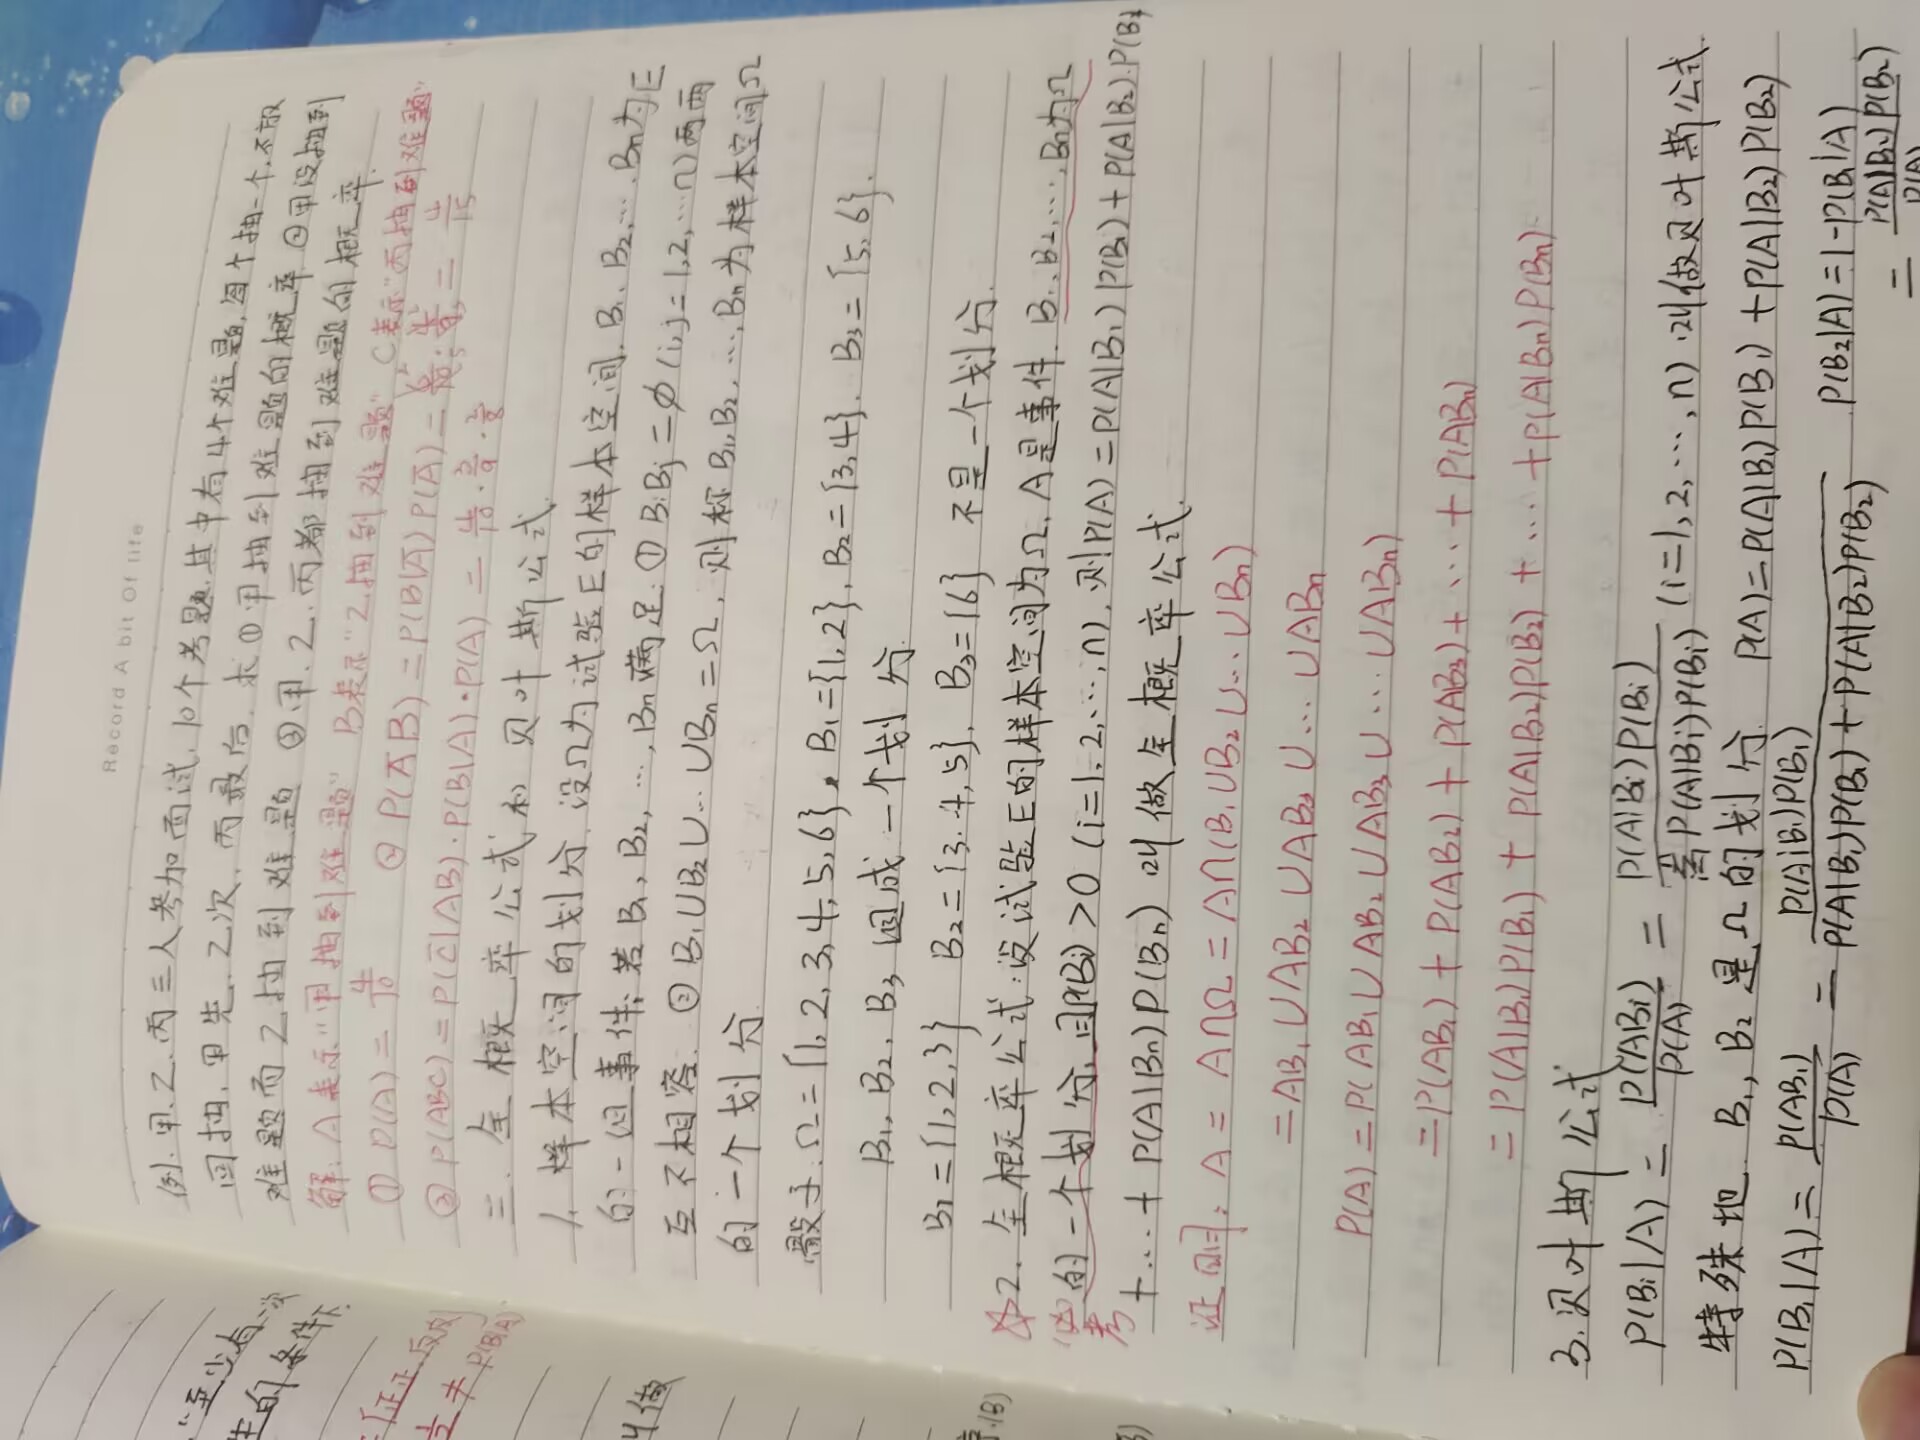 Record A bit Of life
例.甲.乙.丙三人参加面试.10个考题.其中有4个难题,每个抽一个.不放
回抽.甲先.乙次.丙最后.求①甲抽到难题的概率②甲没抽到
难题而乙抽到难题③甲.乙.丙都抽到难题的概率.
解:A表示"甲抽到难题" B表示"乙抽到难题" C表示"丙抽到难题"
① P(A)=4/10 ② P(ĀB)=P(B|Ā)P(Ā)=6/10·4/9=4/15
③ P(ABC)=P(C|AB)·P(B|A)·P(A)=4/10·3/9·2/8
三.全概率公式和贝叶斯公式
1.样本空间的划分.设Ω为试验E的样本空间,B₁.B₂,….Bn为E
的一组事件,若B₁,B₂,…,Bn满足:①BiBj=∅(i,j=1,2,…n)两两
互不相容.②B₁∪B₂∪…∪Bn=Ω,则称B₁,B₂,…,Bn为样本空间Ω
的一个划分.
骰子:Ω={1,2,3,4,5,6},B₁={1,2},B₂={3,4}.B₃={5,6}.
B₁,B₂,B₃组成一个划分.
B₁={1,2,3} B₂={3,4,5},B₃={6}不是一个划分.
☆2.全概率公式:设试验E的样本空间为Ω,A是事件.B₁.B₂,…,Bn为Ω
的一个划分,且P(Bi)>0(i=1,2,…,n),则P(A)=P(A|B₁)P(B₁)+P(A|B₂)·P(B₂)
考
+…+P(A|Bn)P(Bn)叫做全概率公式.
证明:A=A∩Ω=A∩(B₁∪B₂∪…∪Bn)
=AB₁∪AB₂∪AB₃∪…∪ABn
P(A)=P(AB₁∪AB₂∪AB₃∪…∪ABn)
=P(AB₁)+P(AB₂)+P(AB₃)+…+P(ABn)
=P(A|B₁)P(B₁)+P(A|B₂)P(B₂)+…+P(A|Bn)P(Bn)
3.贝叶斯公式
P(Bi|A)=P(ABi)/P(A)=P(A|Bi)P(Bi)/ΣP(A|Bi)P(Bi)(i=1,2,…,n).叫做贝叶斯公式.
特殊地 B₁,B₂是Ω的划分.P(A)=P(A|B₁)P(B₁)+P(A|B₂)P(B₂)
P(B₁|A)=P(AB₁)/P(A)=P(A|B₁)P(B₁)/P(A|B₁)P(B₁)+P(A|B₂)P(B₂) P(B₂|A)=1-P(B₁|A)
=P(A|B₂)P(B₂)/P(A)
"至少有一次
的条件下.
P(B|A)
叫做